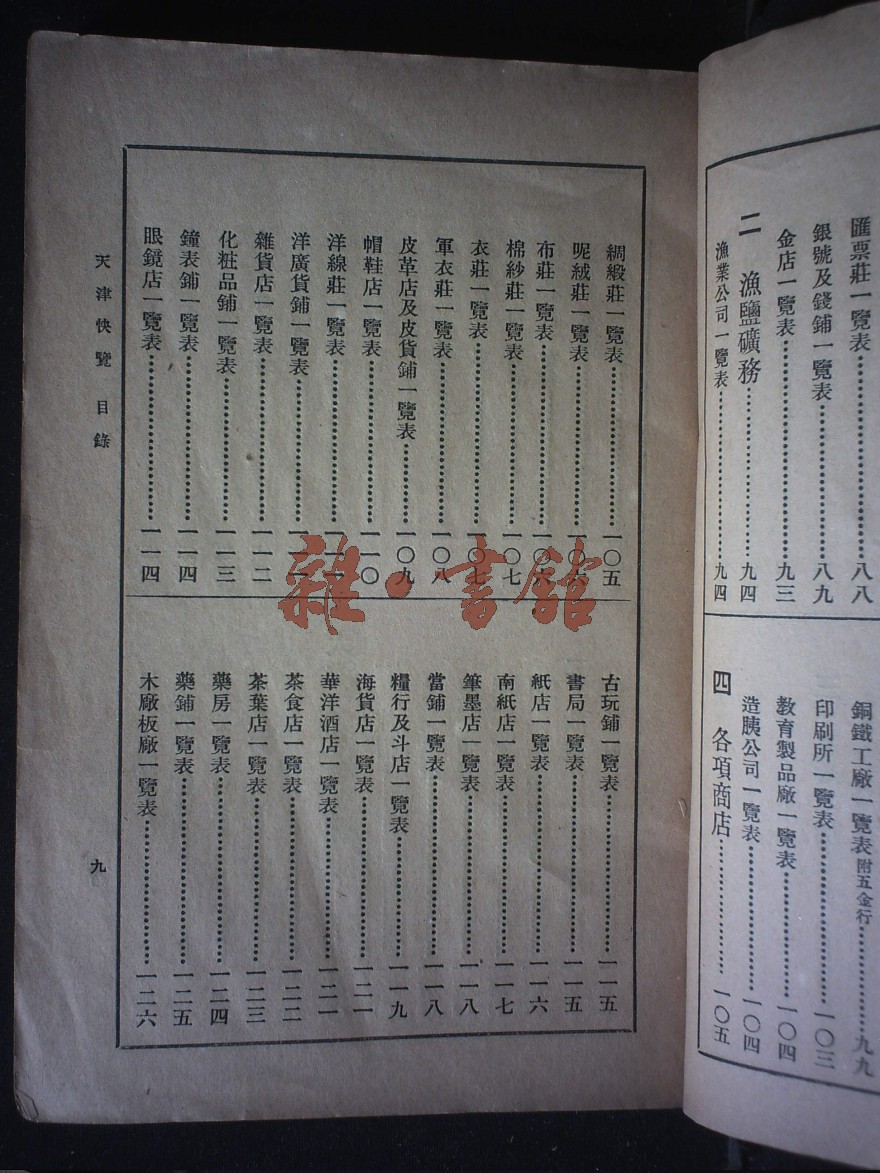 匯票莊一覽表……八八
銀號及錢鋪一覽表……八九
金店一覽表……九三
二 漁鹽礦務……九四
漁業公司一覽表……九四
銅鐵工廠一覽表附五金行……九九
印刷所一覽表……一〇三
教育製品廠一覽表……一〇四
造胰公司一覽表……一〇四
四 各項商店……一〇五
綢緞莊一覽表……一〇五
呢絨莊一覽表……一〇六
布莊一覽表……一〇六
棉紗莊一覽表……一〇七
衣莊一覽表……一〇七
軍衣莊一覽表……一〇八
皮革店及皮貨鋪一覽表……一〇九
帽鞋店一覽表……一一〇
洋線莊一覽表……一一一
洋廣貨鋪一覽表……一一一
雜貨店一覽表……一一二
化粧品鋪一覽表……一一三
鐘表鋪一覽表……一一四
眼鏡店一覽表……一一四
古玩鋪一覽表……一一五
書局一覽表……一一五
紙店一覽表……一一六
南紙店一覽表……一一七
筆墨店一覽表……一一八
當鋪一覽表……一一八
糧行及斗店一覽表……一一九
海貨店一覽表……一二一
華洋酒店一覽表……一二一
茶食店一覽表……一二二
茶葉店一覽表……一二三
藥房一覽表……一二四
藥鋪一覽表……一二五
木廠板廠一覽表……一二六
天津快覽 目錄
九
雜·書館